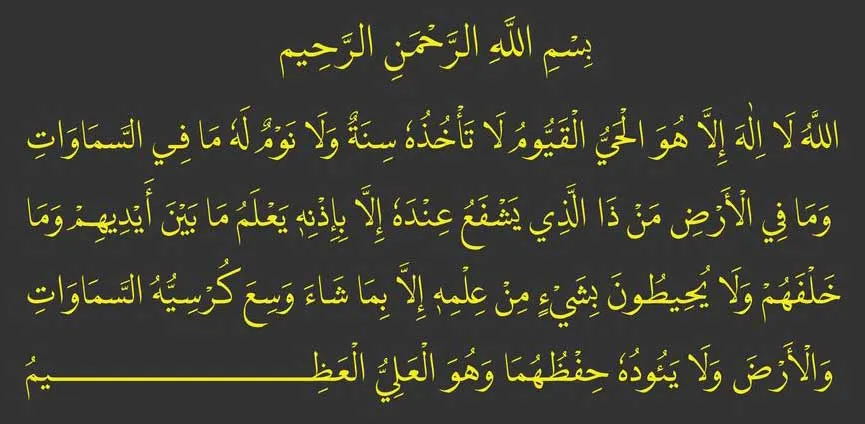 بِسْمِ اللَّهِ الرَّحْمَنِ الرَّحِيم
اللَّهُ لَا اِلٰهَ إِلَّا هُوَ الْحَيُّ الْقَيُّومُ لَا تَأْخُذُهُ سِنَةٌ وَلَا نَوْمٌ لَهُ مَا فِي السَّمَاوَاتِ
وَمَا فِي الْأَرْضِ مَنْ ذَا الَّذِي يَشْفَعُ عِنْدَهُ إِلَّا بِإِذْنِهِ يَعْلَمُ مَا بَيْنَ أَيْدِيهِمْ وَمَا
خَلْفَهُمْ وَلَا يُحِيطُونَ بِشَيْءٍ مِنْ عِلْمِهِ إِلَّا بِمَا شَاءَ وَسِعَ كُرْسِيُّهُ السَّمَاوَاتِ
وَالْأَرْضَ وَلَا يَئُودُهُ حِفْظُهُمَا وَهُوَ الْعَلِيُّ الْعَظِـــــــــــــيمُ